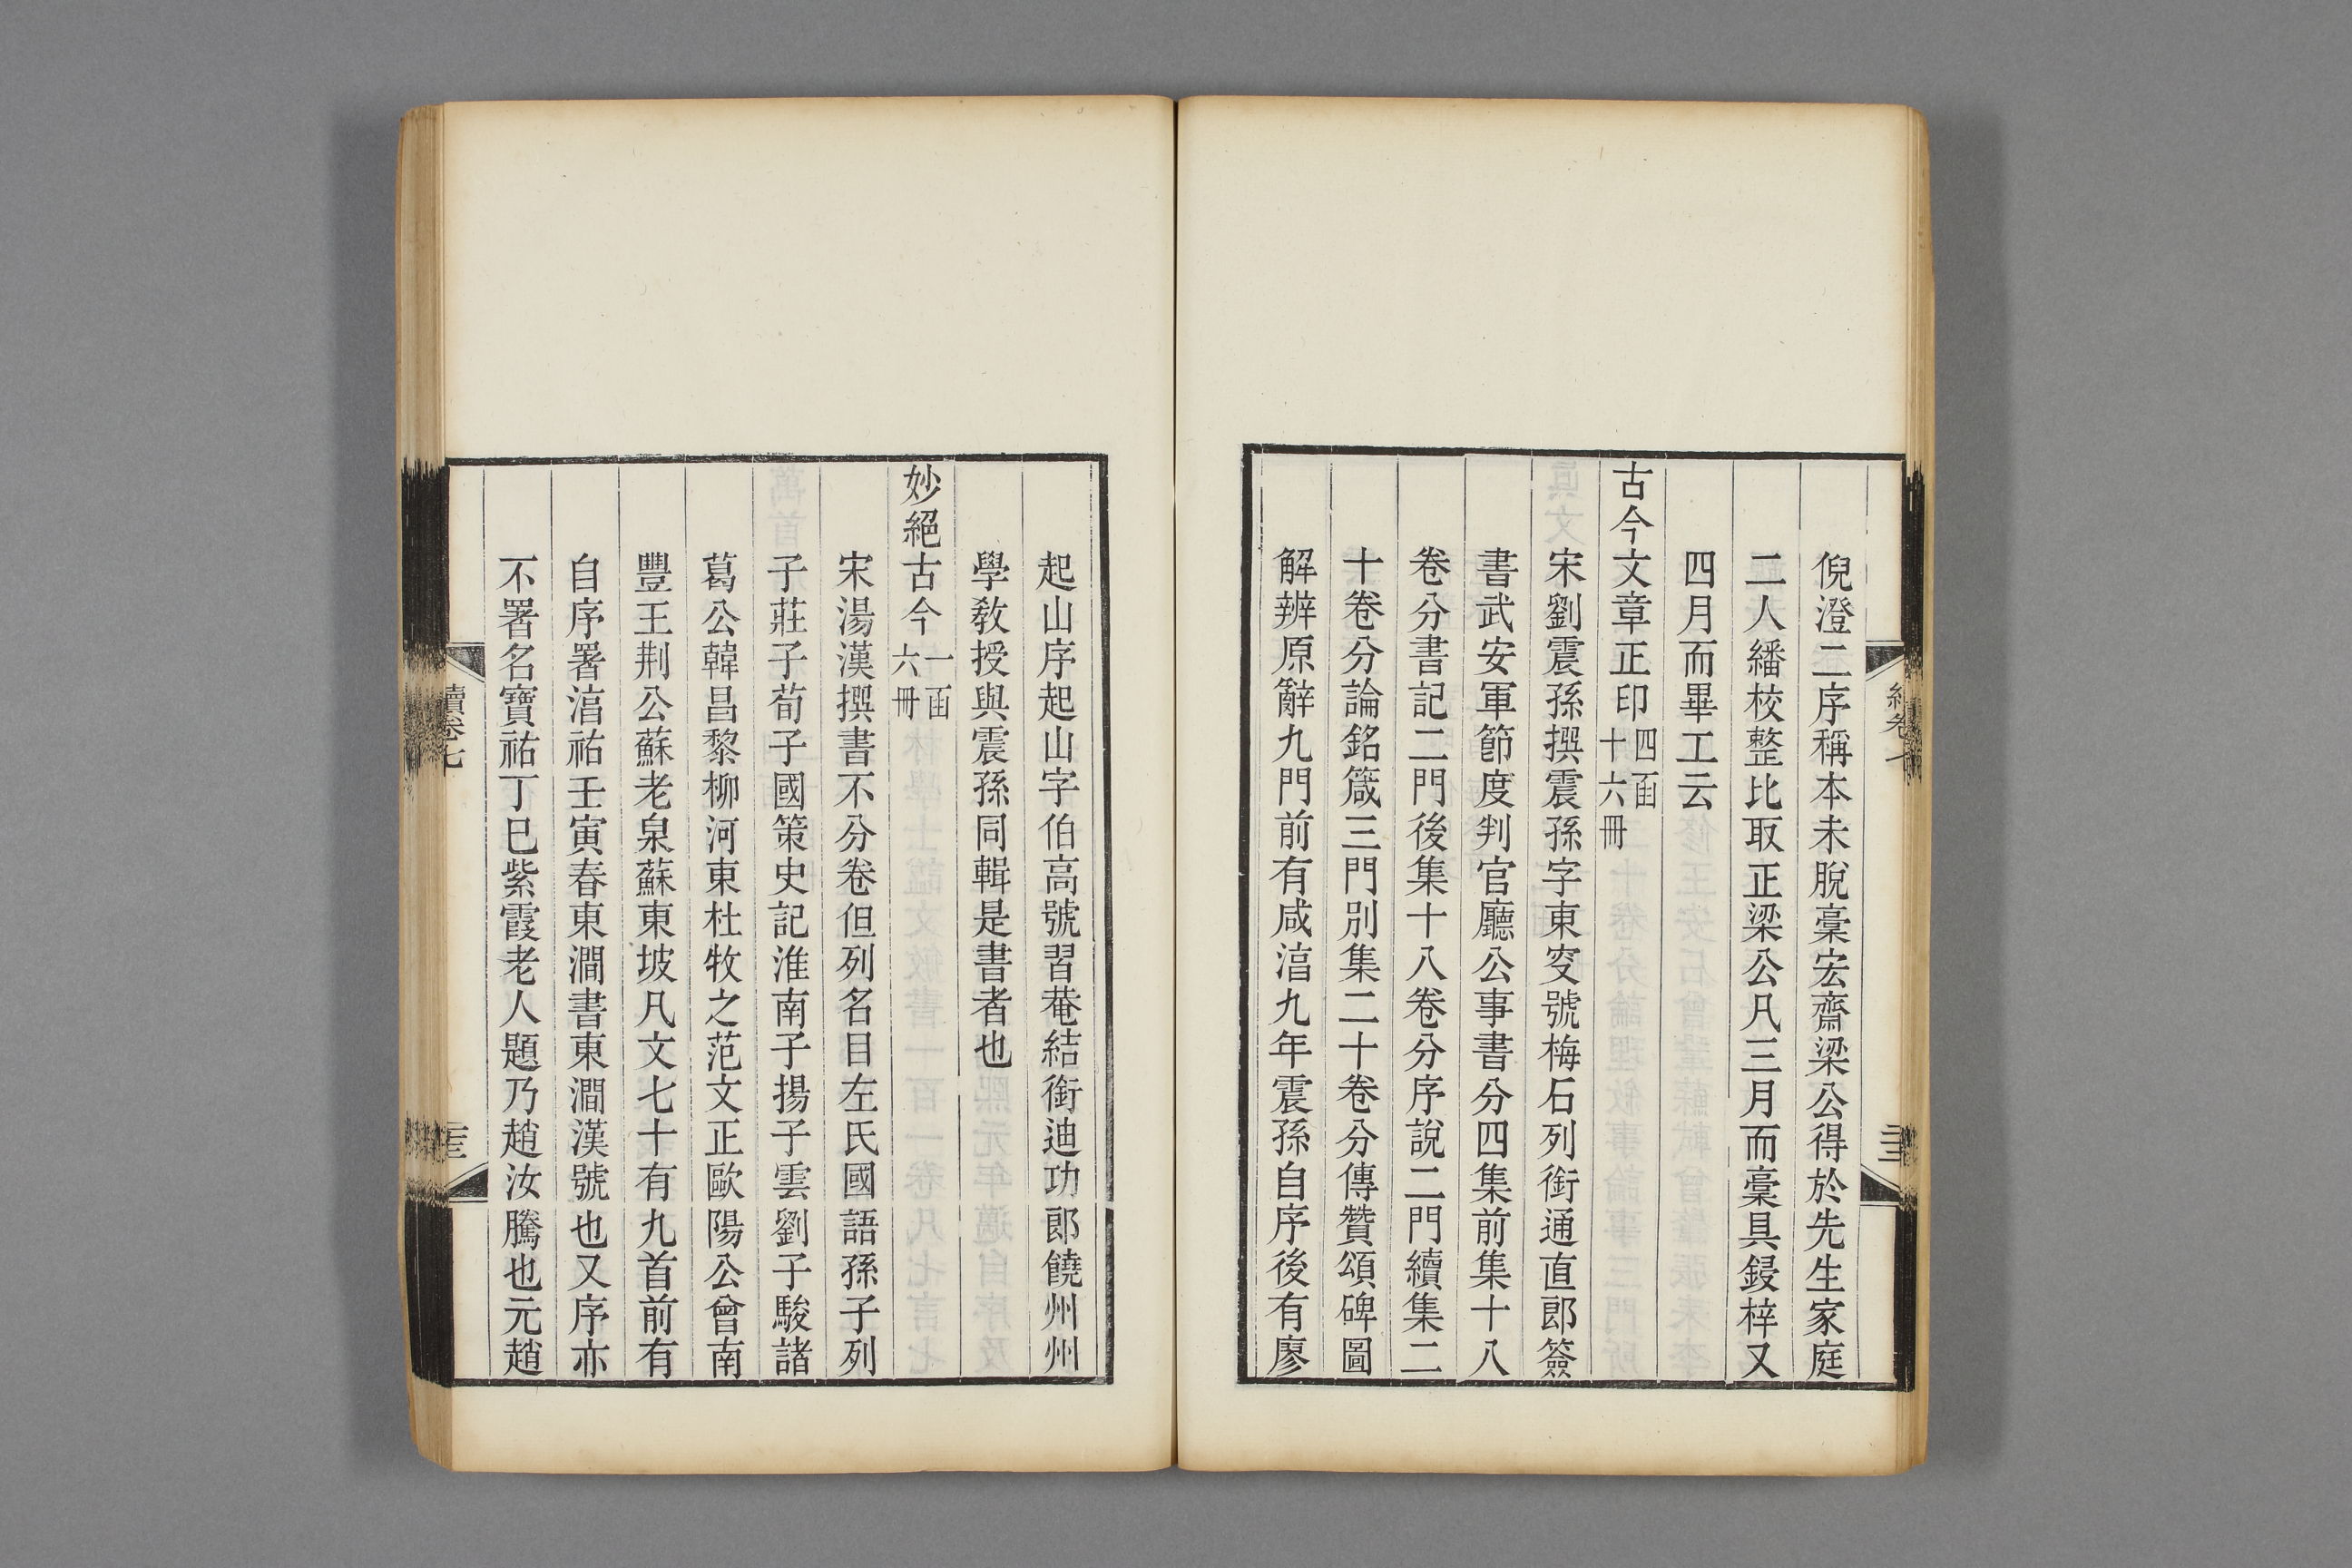 倪澄二序稱本未脫稾宏齋梁公得於先生家庭
二人繙校整比取正梁公凡三月而稾具鋟梓又
四月而畢工云
古今文章正印四函十六冊
宋劉震孫撰震孫字東叜號梅石列銜通直郎簽
書武安軍節度判官廳公事書分四集前集十八
卷分書記二門後集十八卷分序說二門續集二
十卷分論銘箴三門別集二十卷分傳贊頌碑圖
解辨原辭九門前有咸湻九年震孫自序後有廖
起山序起山字伯高號習菴結銜迪功郎饒州州
學敎授與震孫同輯是書者也
妙絕古今一函六冊
宋湯漢撰書不分卷但列名目左氏國語孫子列
子莊子荀子國策史記淮南子揚子雲劉子駿諸
葛公韓昌黎柳河東杜牧之范文正歐陽公曾南
豐王荆公蘇老泉蘇東坡凡文七十有九首前有
自序署湻祐壬寅春東澗書東澗漢號也又序亦
不署名寶祐丁巳紫霞老人題乃趙汝騰也元趙
續卷七